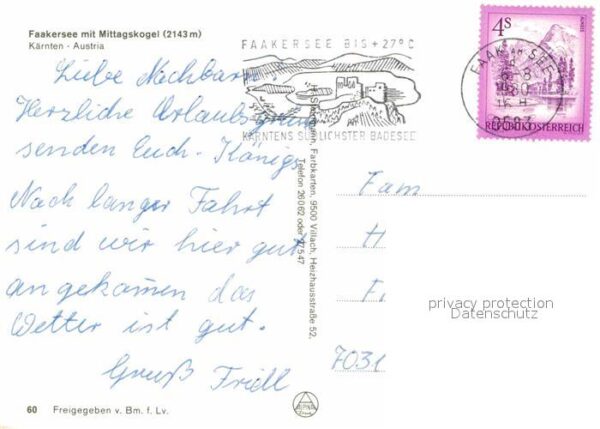 Faakersee mit Mittagskogel (2143 m)
Kärnten - Austria
FAAKERSEE BIS +27°C
KÄRNTENS SÜDLICHSTER BADESEE
4S
REPUBLIK ÖSTERREICH
FAAK AM SEE
1980
9583
Liebe Nachbarn.
Herzliche Urlaubsgrüße
senden Euch - Königs
Nach langer Fahrt
sind wir hier gut
angekommen das
Wetter ist gut.
Gruß Friedl
Farbkarten, 9500 Villach, Heizhausstraße 52,
Telefon 26062 oder 27547
Fam
H
F
7031
privacy protection
Datenschutz
60 Freigegeben v. Bm. f. Lv.